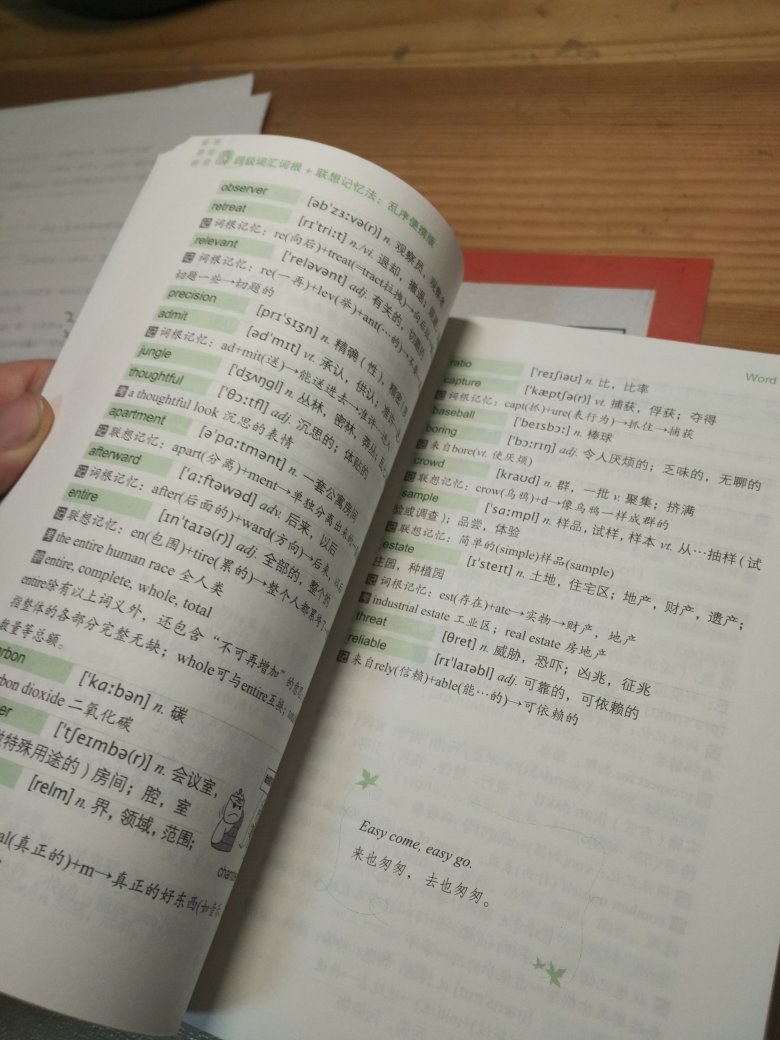 四级词汇词根+联想记忆法：乱序便携版
observer [əbˈzɜːvə(r)] n. 观察员，观察者
retreat [rɪˈtriːt] n./vi. 退却，撤退，
记 词根记忆：re(向后)+treat(=tract拉拽)→向后
relevant [ˈreləvənt] adj. 有关的，切题的
记 词根记忆：re(一再)+lev(举)+ant(…的)→
切题一些→切题的
precision [prɪˈsɪʒn] n. 精确(性)，精密
admit [ədˈmɪt] vt. 承认，供认；准许
记 词根记忆：ad+mit(送)→能送进去→准许
jungle [ˈdʒʌŋɡl] n. 丛林，密林，莽丛；
thoughtful [ˈθɔːtfl] adj. 沉思的；体贴的
a thoughtful look 沉思的表情
apartment [əˈpɑːtmənt] n. 一套公寓房间
记 联想记忆：apart(分离)+ment→单独分离出来的
afterward [ˈɑːftəwəd] adv. 后来，以后
记 词根记忆：after(后面的)+ward(方向)→后来，以后
entire [ɪnˈtaɪə(r)] adj. 全部的，整个的
记 联想记忆：en(包围)+tire(累的)→整个人都累
the entire human race 全人类
entire, complete, whole, total
entire除有以上词义外，还包含“不可再增加”的
指整体的各部分完整无缺；whole可与entire互换；
数量等总额。
[ˈkɑːbən] n. 碳
dioxide 二氧化碳
[ˈtʃeɪmbə(r)] n. 会议室，
特殊用途的）房间；腔，室
[relm] n. 界，领域，范围；
(真正的)+m→真正的好东西
Word
ratio [ˈreɪʃiəʊ] n. 比，比率
capture [ˈkæptʃə(r)] vt. 捕获，俘获；夺得
记 词根记忆：capt(抓)+ure(表行为)→抓住→捕获
baseball [ˈbeɪsbɔː] n. 棒球
boring [ˈbɔːrɪŋ] adj. 令人厌烦的；乏味的，无聊的
记 来自bore(vt. 使厌烦)
crowd [kraʊd] n. 群，一批 v. 聚集；挤满
记 联想记忆：crow(乌鸦)+d→像乌鸦一样成群的
sample [ˈsɑːmpl] n. 样品，试样，样本 vt. 从…抽样（试
验或调查）；品尝，体验
记 联想记忆：简单的(simple)样品(sample)
estate [ɪˈsteɪt] n. 土地，住宅区；地产，财产，遗产；
庄园，种植园
记 词根记忆：est(存在)+ate→实物→财产，地产
industrial estate 工业区；real estate 房地产
threat [θret] n. 威胁，恐吓；凶兆，征兆
reliable [rɪˈlaɪəbl] adj. 可靠的，可依赖的
记 来自rely(信赖)+able(能…的)→可依赖的
Easy come, easy go.
来也匆匆，去也匆匆。